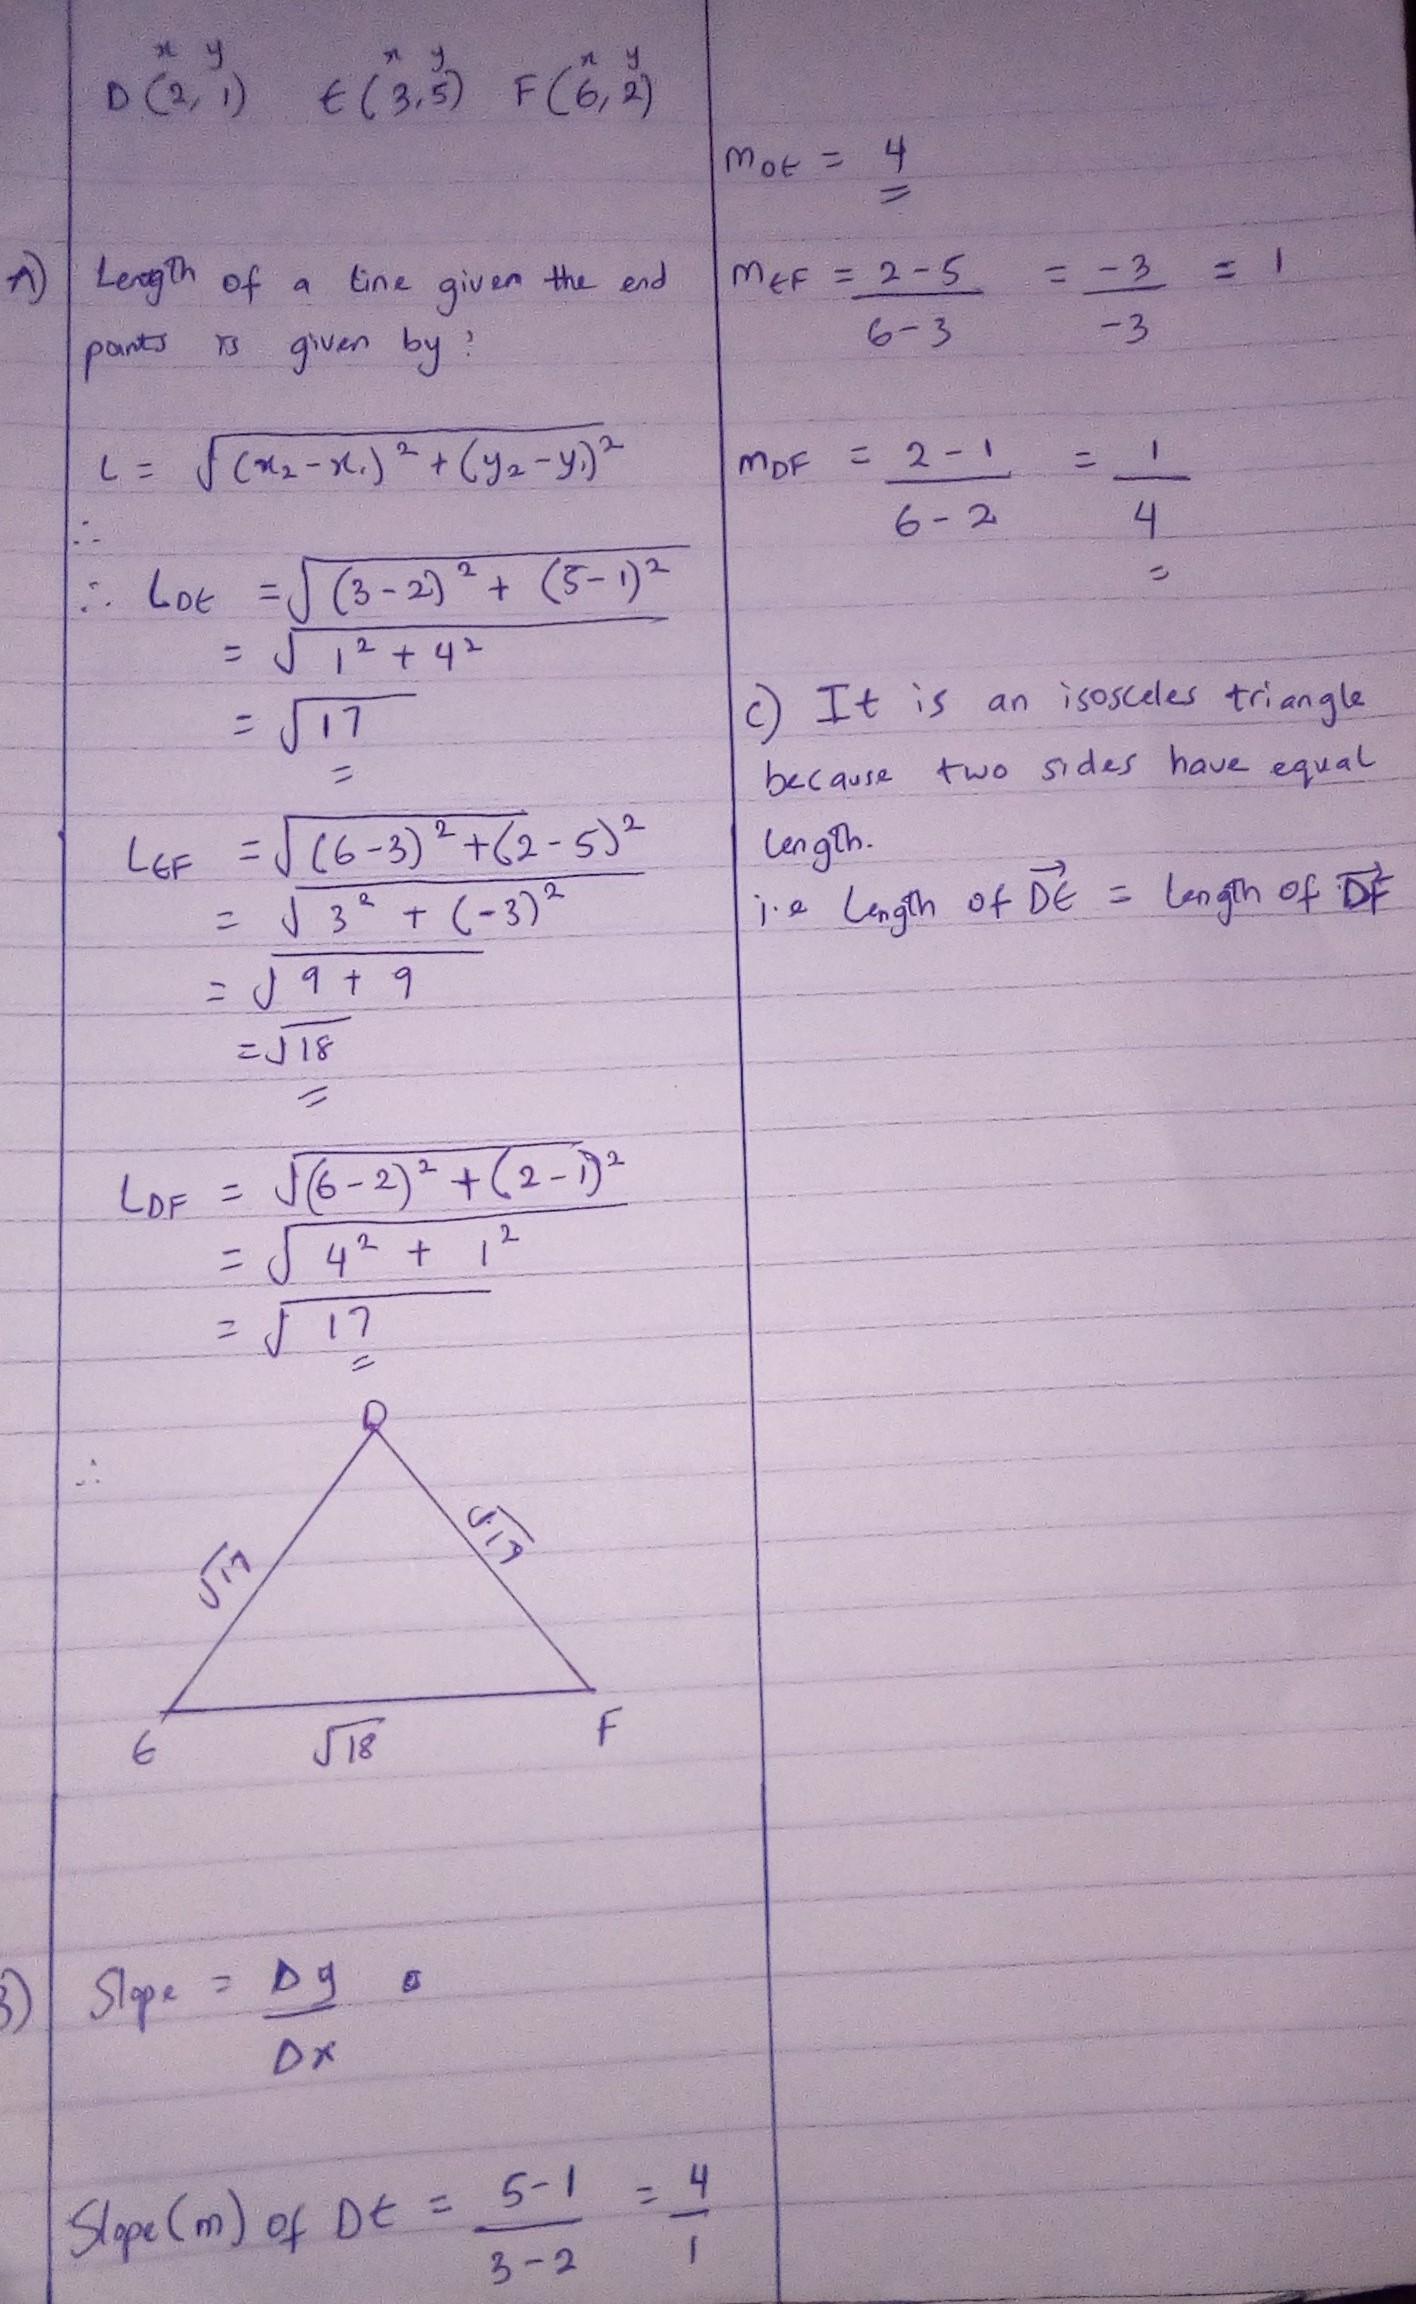 x y x y x y
D (2, 1) E (3,5) F (6, 2)
A) Length of a line given the end
points is given by:
L = √(x₂-x₁)² + (y₂-y₁)²
∴
∴ LDE = √(3-2)² + (5-1)²
= √1² + 4²
= √17
LEF = √(6-3)² + (2-5)²
= √3² + (-3)²
= √9 + 9
= √18
LDF = √(6-2)² + (2-1)²
= √4² + 1²
= √17
∴
D
√17 √17
E √18 F
B) Slope = Δy
Δx
Slope (m) of DE = 5-1 = 4
3-2 1
mDE = 4
mEF = 2-5 = -3 = 1
6-3 -3
mDF = 2-1 = 1
6-2 4
c) It is an isosceles triangle
because two sides have equal
length.
i.e Length of DE = Length of DF